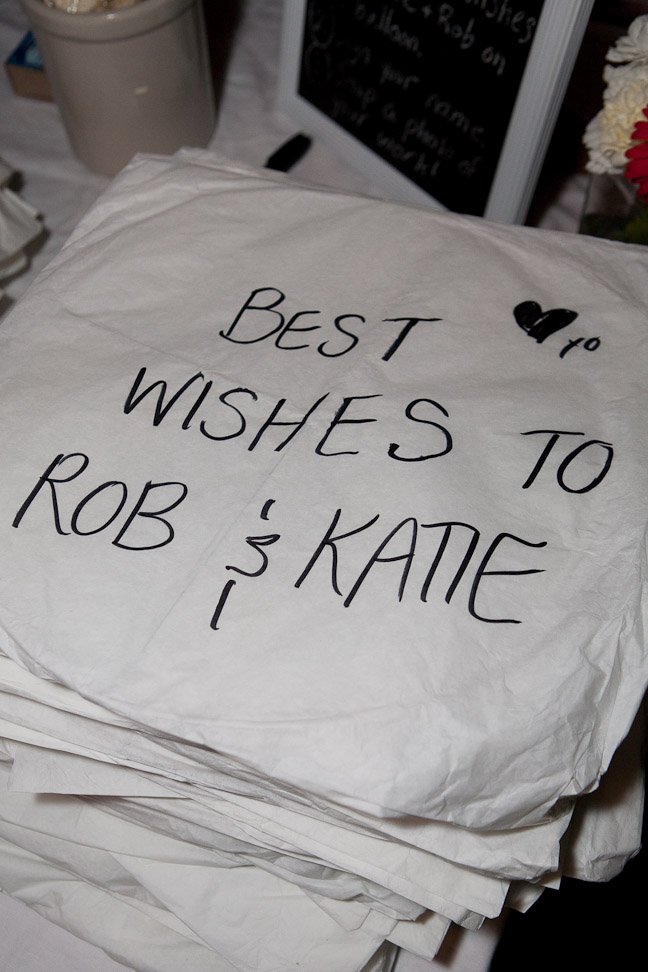 wishes
+ Rob on
balloon.
your name.
a photo of
your work!
BEST
xo
WISHES TO
ROB & KATIE